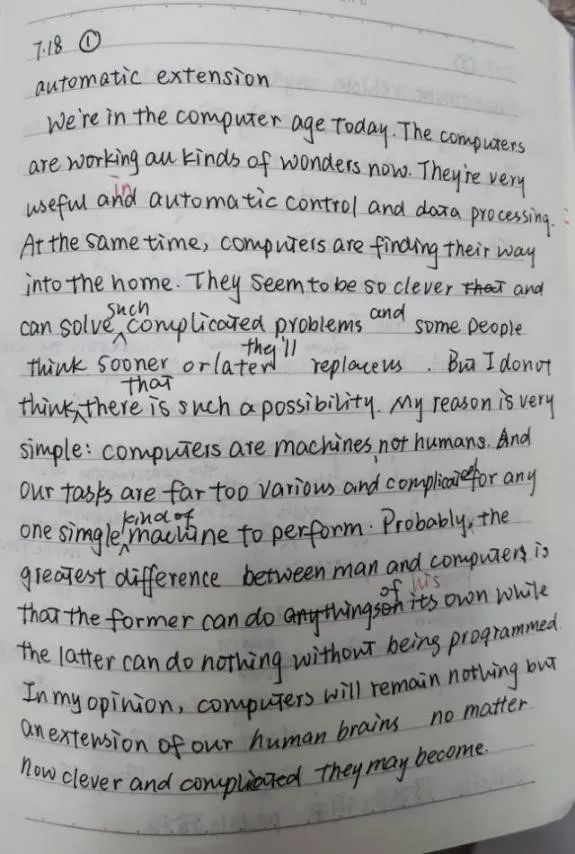 7.18 ①
automatic extension
We're in the computer age today. The computers
are working all kinds of wonders now. They're very
useful and in automatic control and data processing.
At the same time, computers are finding their way
into the home. They seem to be so clever that and
can solve such complicated problems and some people
think sooner or later they'll replace us. But I do not
think that there is such a possibility. My reason is very
simple: computers are machines, not humans. And
our tasks are far too various and complicated for any
one simgle kind of machine to perform. Probably, the
greatest difference between man and computers is
that the former can do anything of his its own while
the latter can do nothing without being programmed.
In my opinion, computers will remain nothing but
an extension of our human brains no matter
how clever and complicated they may become.